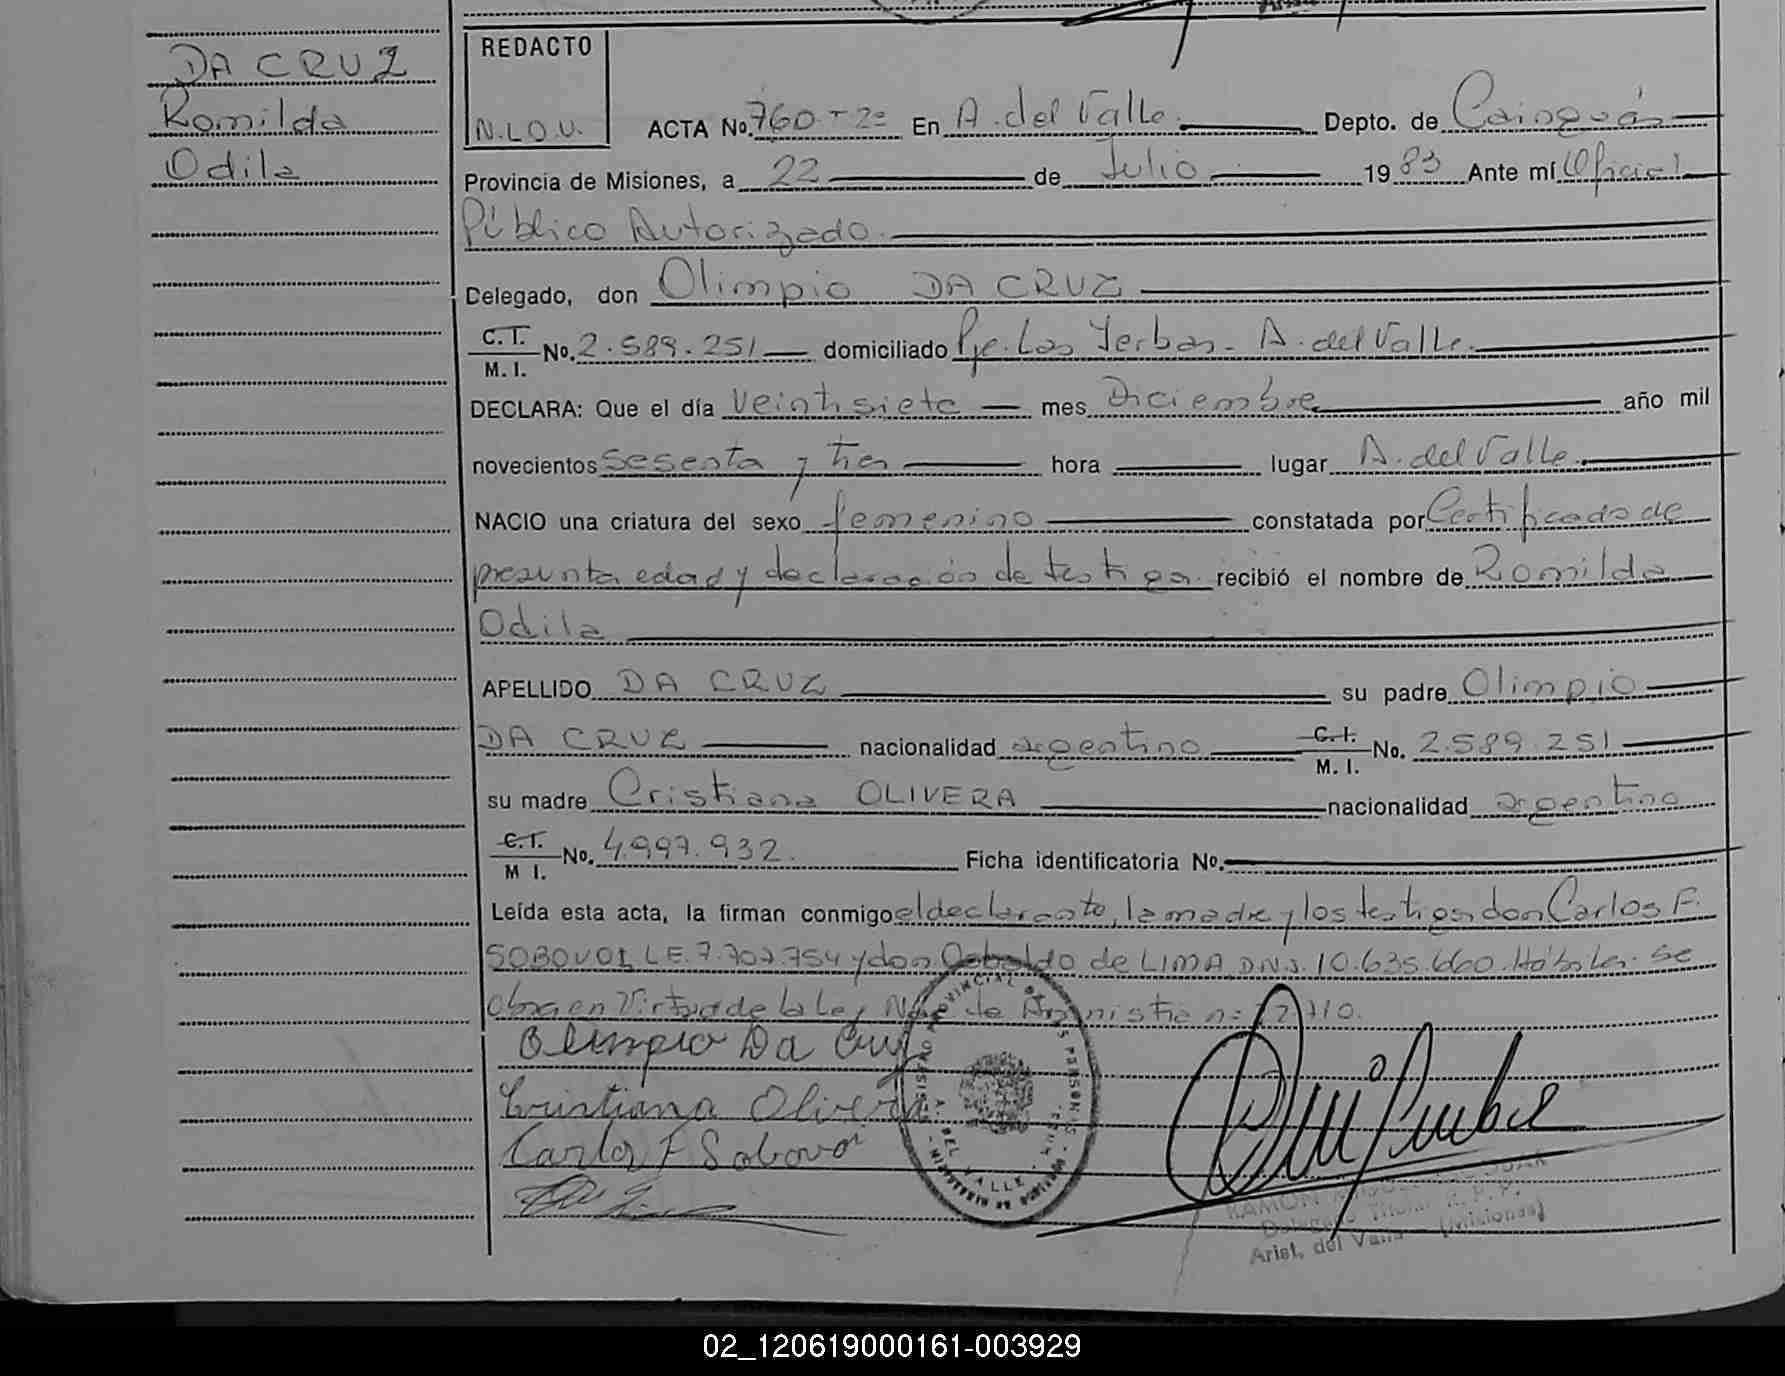 DA CRUZ
Romilda
Odila
REDACTO
N.L.O.U.
ACTA No. 760-Tº 2º En A. del Valle. Depto. de Cainguás
Provincia de Misiones, a 22 de Julio 1983 Ante mí Oficial
Público Autorizado.
Delegado, don Olimpio DA CRUZ
C.I. M.I. No. 2.589.251 domiciliado Pje. Las Yerbas - A. del Valle.
DECLARA: Que el día veintisiete mes Diciembre año mil
novecientos sesenta y tres hora lugar A. del Valle.
NACIO una criatura del sexo femenino constatada por Certificado de
presunta edad y declaración de testigos recibió el nombre de Romilda
Odila
APELLIDO DA CRUZ su padre Olimpio
DA CRUZ nacionalidad argentino C.I. M.I. No. 2.589.251
su madre Cristiana OLIVERA nacionalidad argentina
C.I. M I. No. 4.997.932. Ficha identificatoria No.
Leída esta acta, la firman conmigo el declarante, la madre y los testigos don Carlos F.
SOBOVOI L.E. 7.707.754 y don Osbaldo de LIMA D.N.I. 10.635.660. Hábiles. Se
obra en Virtud de la Ley de Amnistia nº
Olimpio Da Cruz
Cristiana Olivera
Carlos F Sobovoi
REGISTRO PROVINCIAL DE LAS PERSONAS
A. DEL VALLE
RAMON
Delegado Titular R. P. P.
Arist. del Valle (Misiones)
02_120619000161-003929